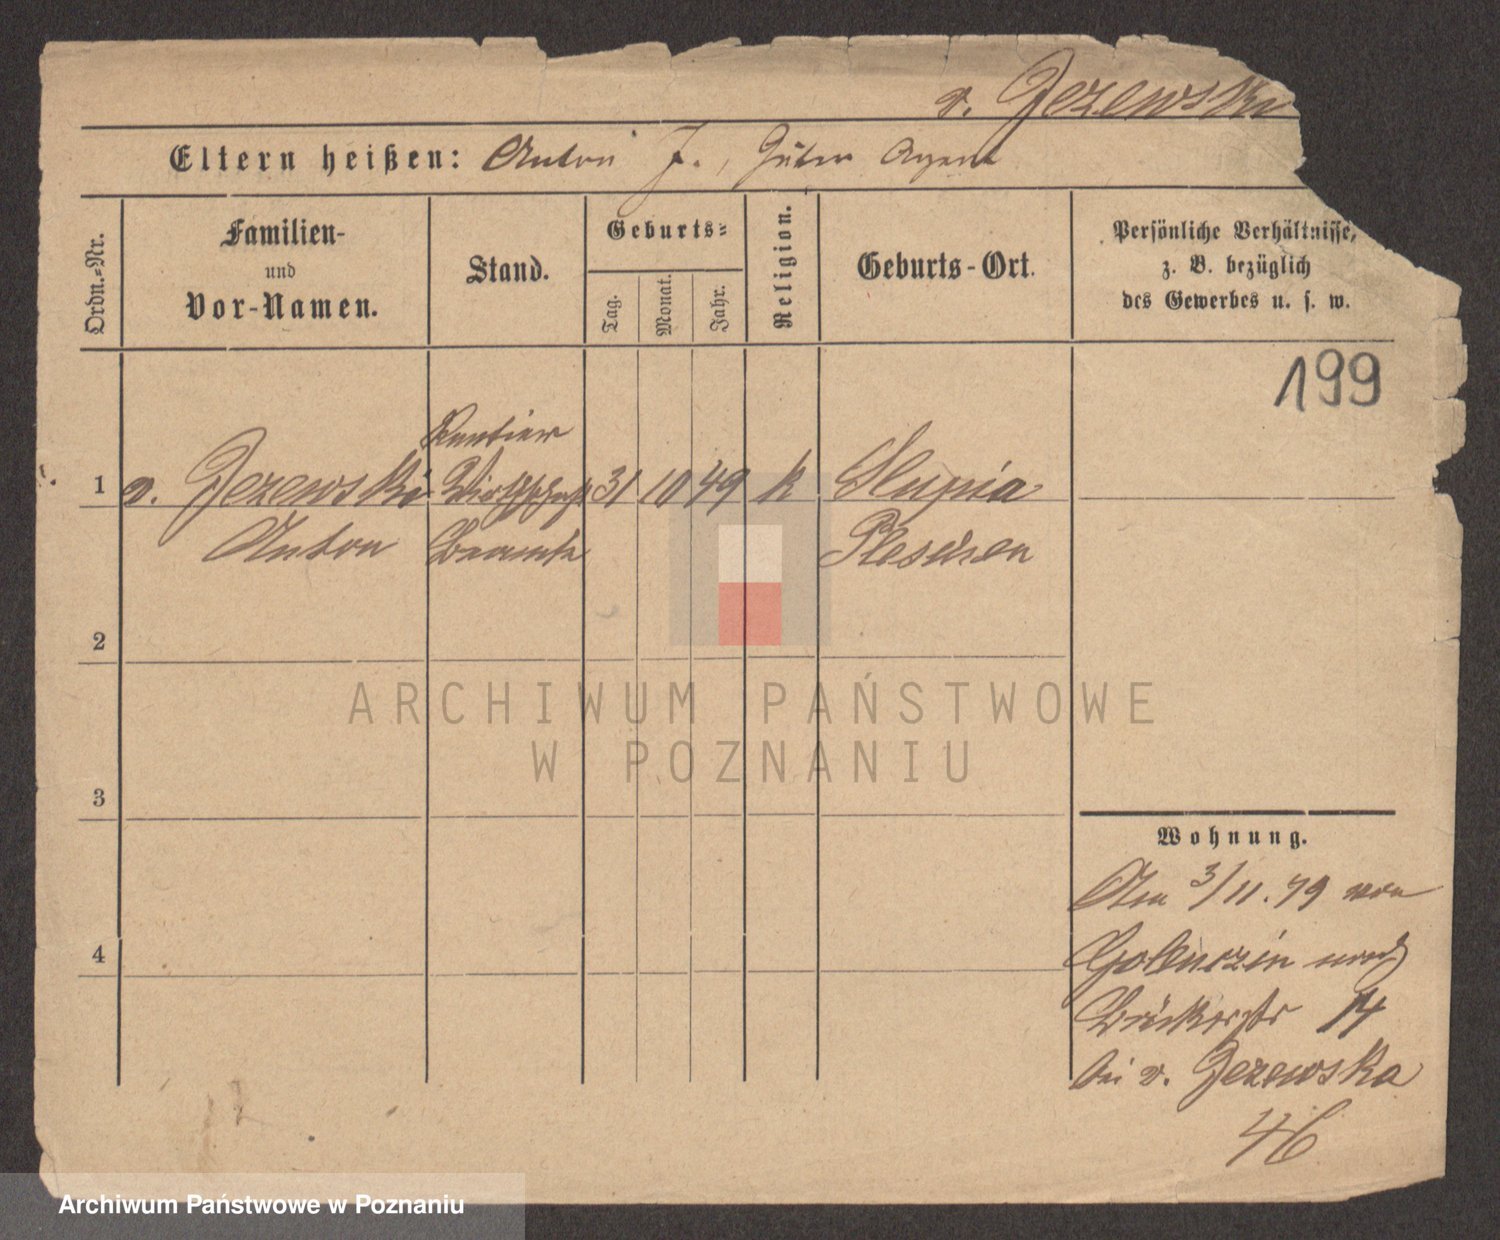 v. Jezewska
Eltern heißen: Anton J., Güter Agent
Ordn.=Nr.
Familien-
und
Vor-Namen.
Stand.
Geburts=
Tag.
Monat.
Jahr.
Religion.
Geburts-Ort.
Persönliche Verhältnisse,
z. B. bezüglich
des Gewerbes u. s. w.
199
Rentier
1 v. Jezewski Wirthschafts 31 10 49 k Slupia
Anton Beamter Pleschen
2
3
4
Wohnung.
Am 3/11. 79 von
nach
14
bei v. Jezewska
46
ARCHIWUM PAŃSTWOWE
W POZNANIU
Archiwum Państwowe w Poznaniu